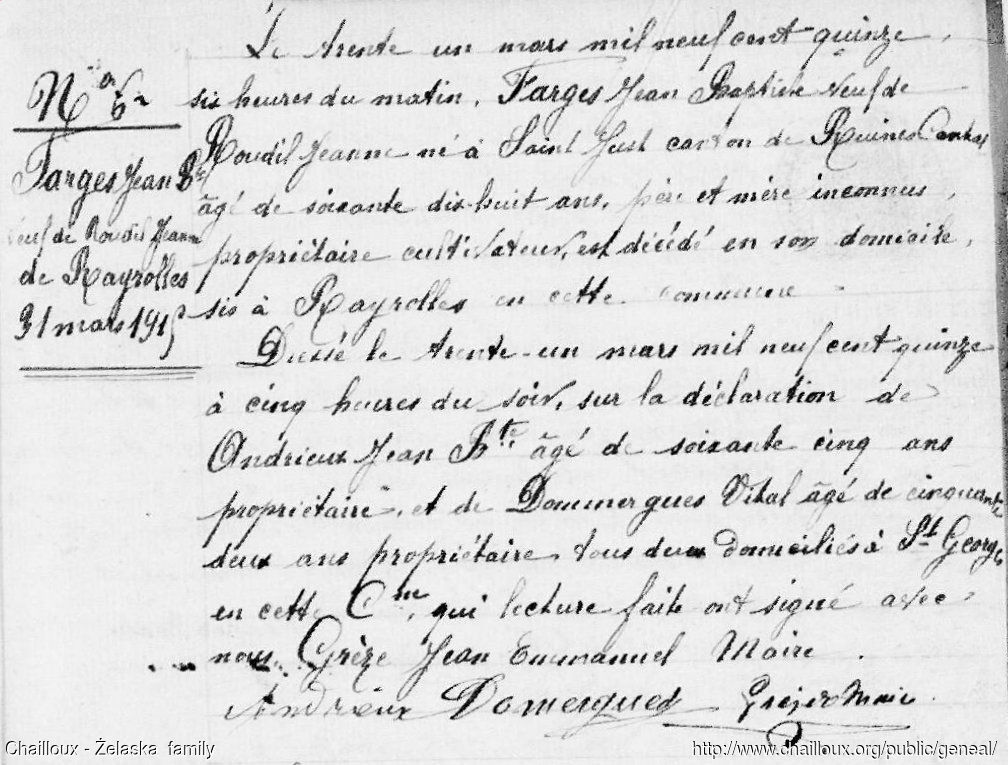 N° 6
Farges Jean Bte
veuf de Roudil Jeanne
de Rayrolles
31 mars 1915
Le trente un mars mil neuf cent quinze,
six heures du matin, Farges Jean Baptiste veuf de
Roudil Jeanne né à Saint Just canton de Ruines Cantal
âgé de soixante dix-huit ans, père et mère inconnus,
propriétaire cultivateur, est décédé en son domicile,
sis à Rayrolles en cette commune
Dressé le trente-un mars mil neuf cent quinze
à cinq heures du soir, sur la déclaration de
Andrieux Jean Bte âgé de soixante cinq ans
propriétaire, et de Dommergues Vital âgé de cinquante
deux ans propriétaire, tous deux domiciliés à St George
en cette Cne, qui lecture faite ont signé avec
nous, Grèze Jean Emmanuel Maire.
Andrieux Domergues Grèze Maire
Chailloux - Želaska family
http://www.chailloux.org/public/geneal/